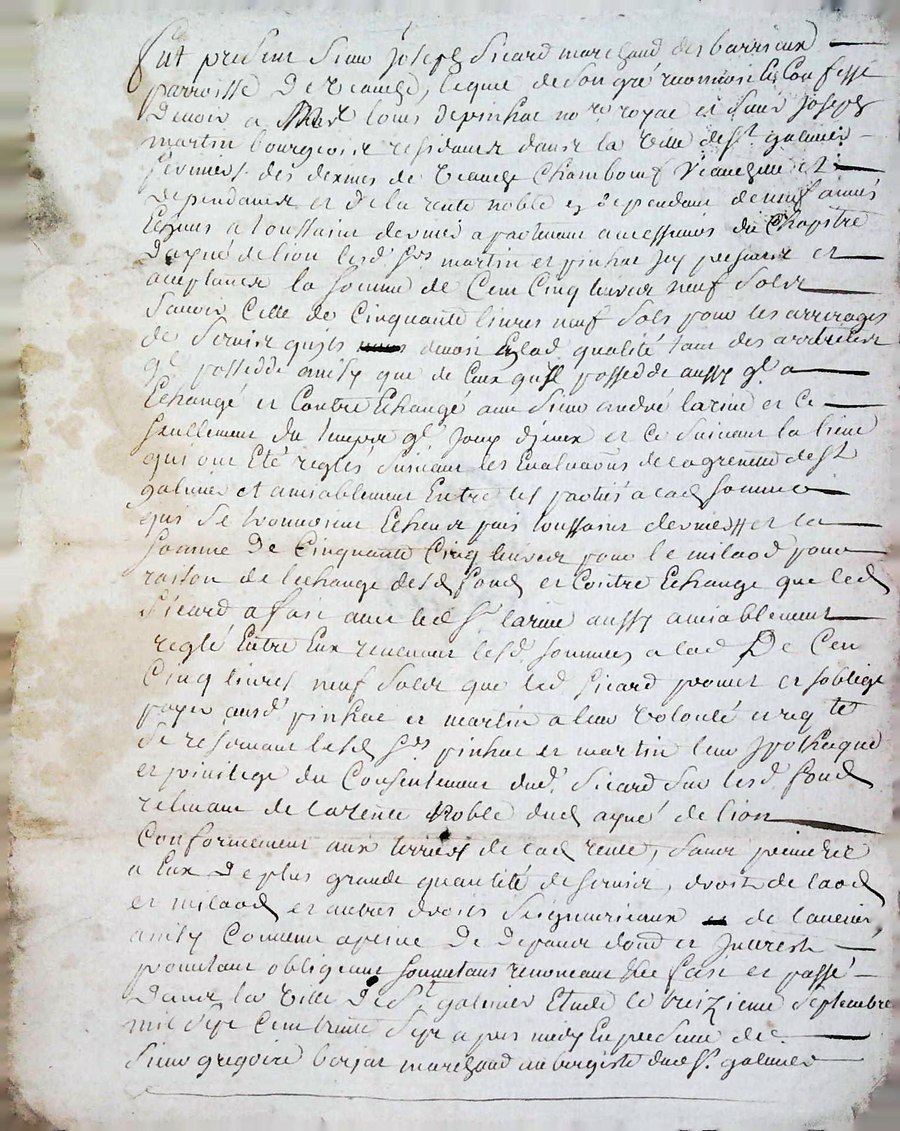 fut present sieur Joseph Sicard marchand des barriaux
parroisse De Veauche, lequel de son gré reconnoit et Confesse
Devoir a Me louis depinhac nore royal et sieur Joseph
martin bourgeois residants dans la Ville de St galmier
fermiers des dixmes de Veauche Chambœuf Veauchette et
Dependances et de la rente noble en dependant de neuf années
Echeus a toussaint dernier apartenant a messieurs du Chapitre
Dayné de lion lesd srs martin et pinhac icy presents et
aceptants la somme de Cent Cinq livres neuf sols
Sauoir Celle de Cinquante livres neuf sols pour les arrerages
de servis quils devoit a lad qualité tant des
ql possedde ainsy que de Ceux qu'il possedde aussy ql a
Echangé et Contre Echangé avec sieur andré larine et ce
seullement du temps ql jouy dyceux et ce suivant la liene
qui ont Eté reglés suivant les Evaluaōns de la grenette de St
galmier et amiablement Entre les parties a lad somme
qui se trouvoient Echeus puis toussaint dernier et la
somme De Cinquante Cinq livres pour le milaod pour
raison de lechange desd fond et Contre Echange que led
Sicard a fait avec led sr larine aussy amiablement
reglé Entre Eux revenant lesd sommes a lad De Cent
Cinq livres neuf sols que led Sicard promet et soblige
payer ausd pinhac et martin a leur Volonté et reqte
se reservant lesd srs pinhac et martin leur ypotheque
et privilege du Consentement dud Sicard sur lesd fond
relevant de la rente Noble dud ayné de lion
Conformement aux terriers de lad rente, sans prejudice
a Eux De plus grande quantité de servis, droit de laod
et milaod et autres droits Seigneuriaux de lavenir
ainsy Convenu a peine De Depans dond et Interest
pourtant obligeant soumettant renonceant &ce fait et passé
Dans la Ville De St galmier Etude le treizieme Septembre
mil Sept Cent trente Sept apres midy En presence de
Sieur gregoire marchand aubergiste dud St galmier